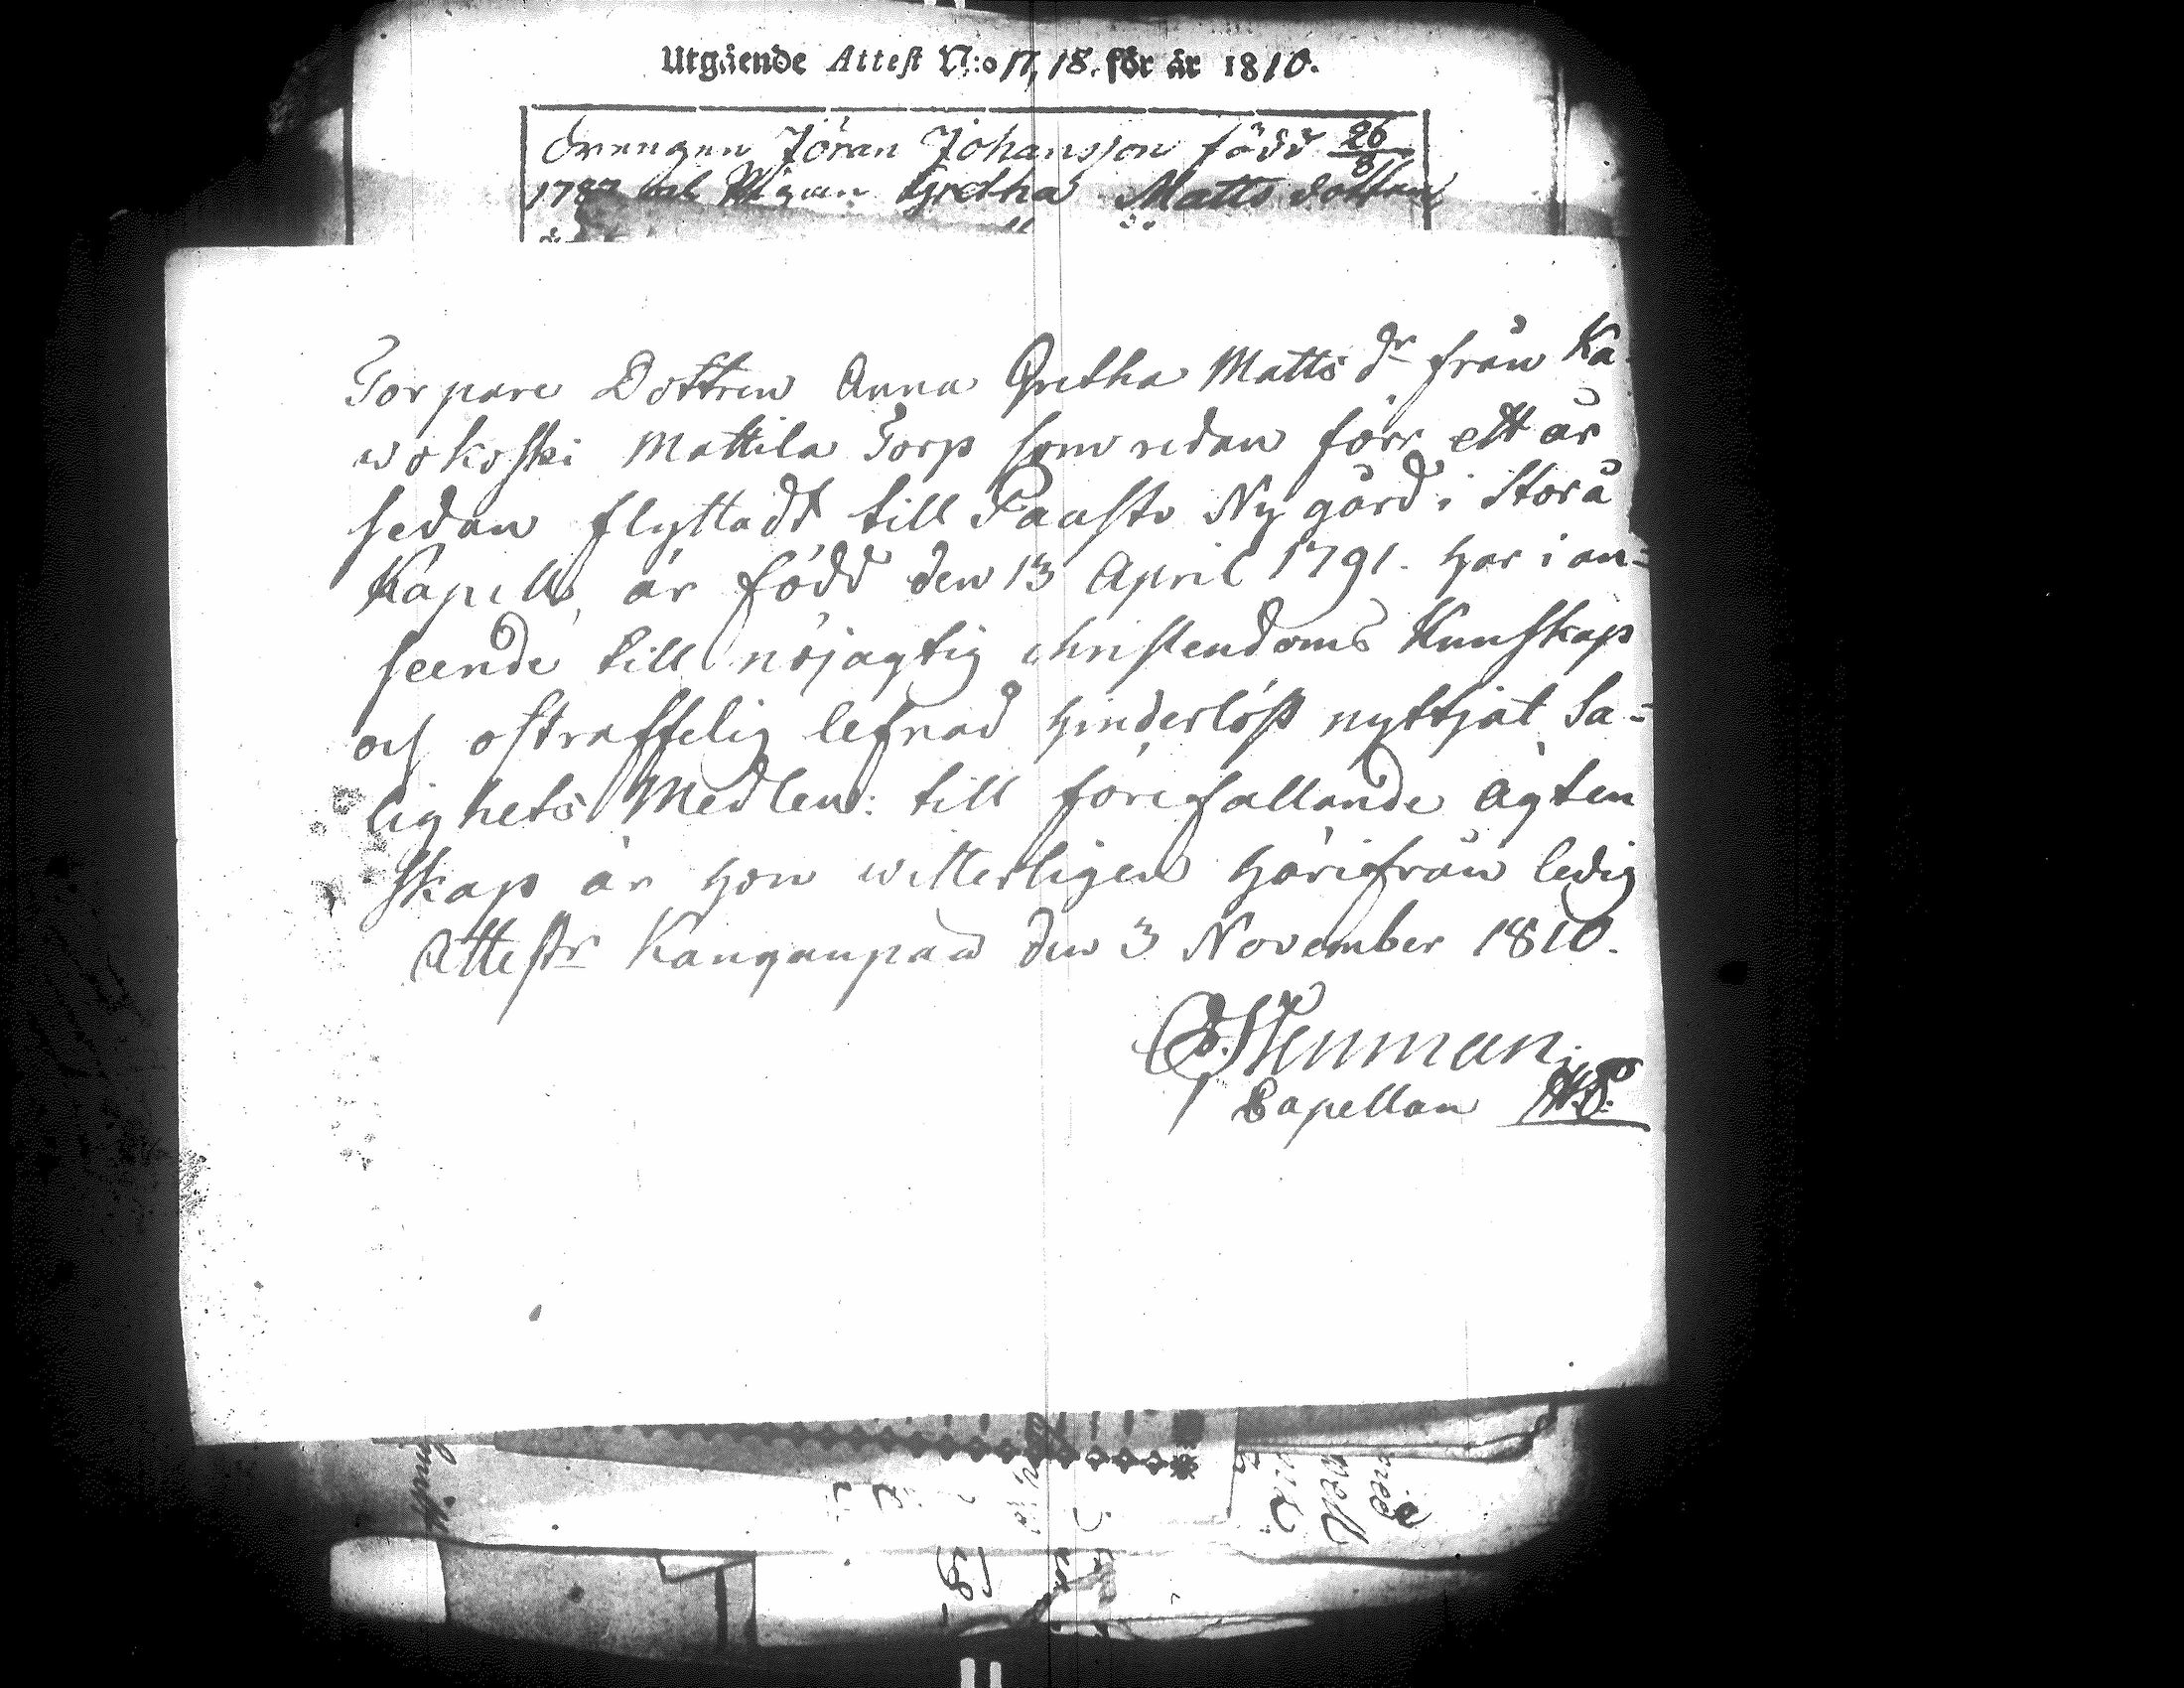 Utgående Attest N:o 17, 18. för år 1810.
Drengen Jöran Johansson född 26/8
1787 och Pigan Gretha Matts dotter
Torpare Dottren Anna Gretha Matts dr från Ka-
wokoski Mattila Torp som redan förr ett år
sedan flyttadt till Paasto Nygård i Storå
Kapell, är född den 13 April 1791. har i an=
seende till nöjagtig christendoms Kunskap
och ostraffelig lefnad hinderlöst nyttjat Sa=
lighets Medlen: till förefallande ägten
skap är hon witterligen härifrån ledig
Attestr Kangunpää den 3 November 1810.
Stenman
Capellan